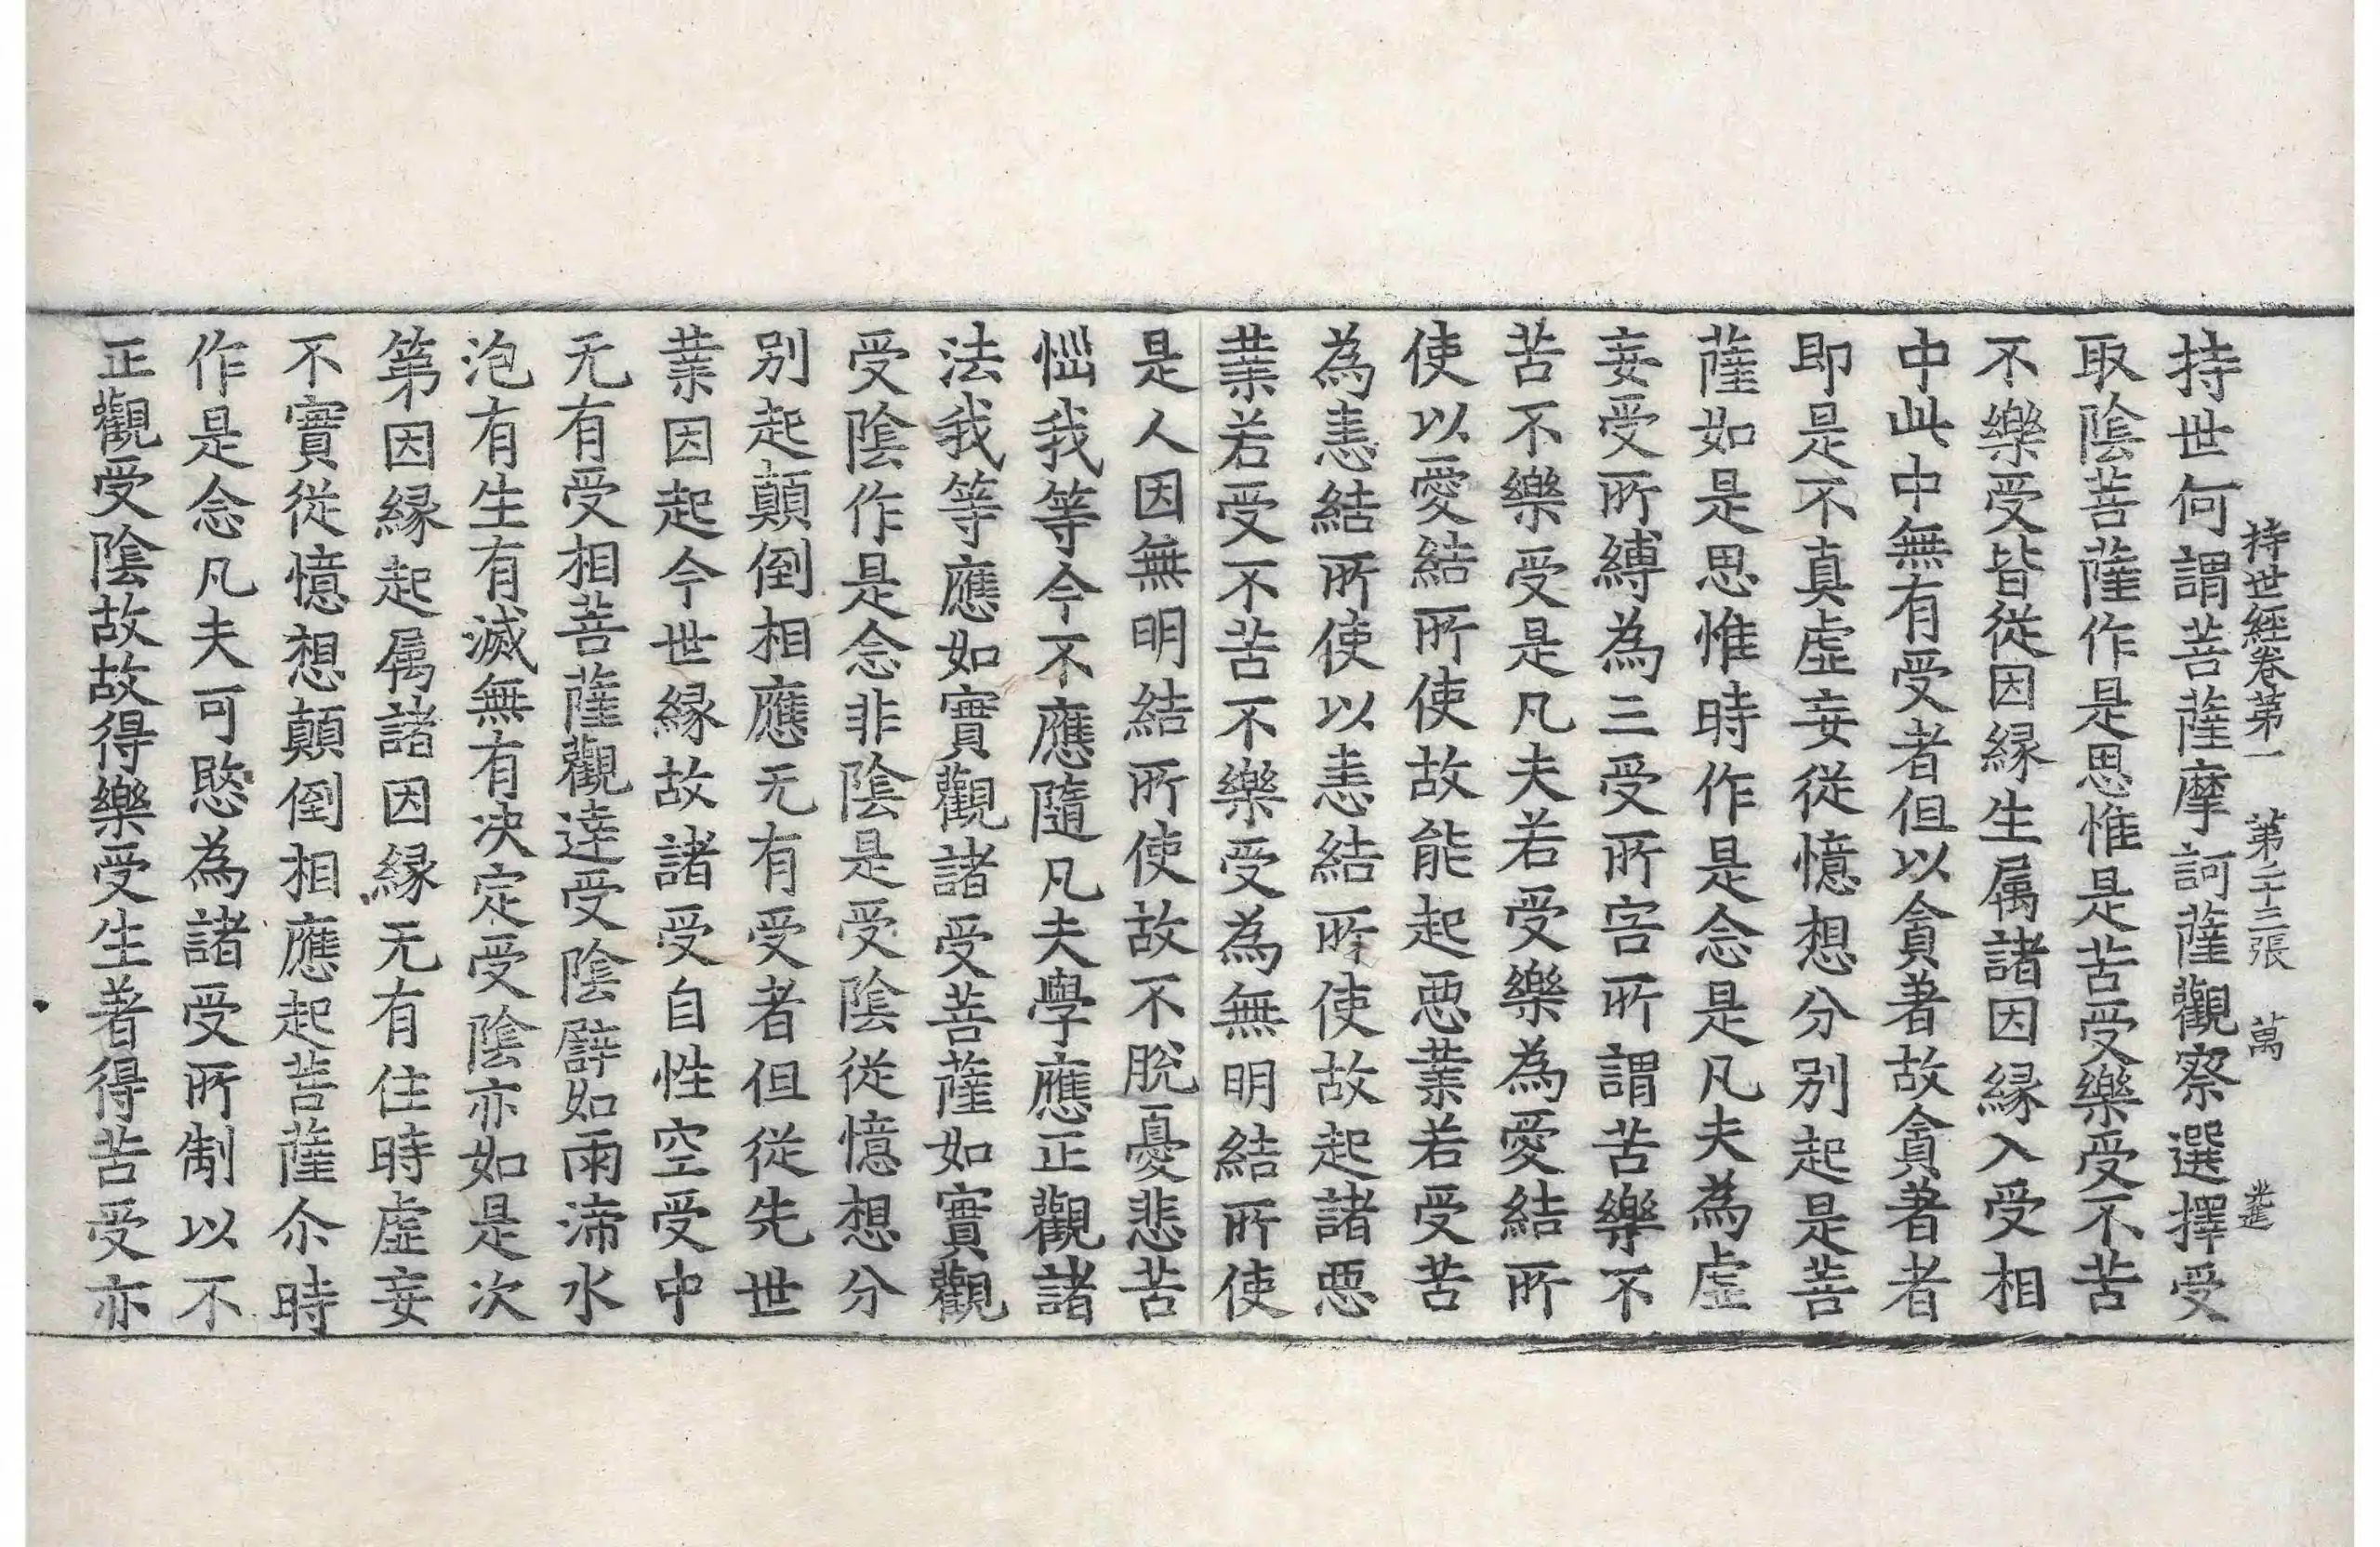 持世經卷第一 第二十三張 萬
持世何謂菩薩摩訶薩觀察選擇受
取陰菩薩作是思惟是苦受樂受不苦
不樂受皆從因緣生屬諸因緣入受相
中此中無有受者但以貪著故貪著者
即是不真虛妄從憶想分別起是菩
薩如是思惟時作是念是凡夫為虛
妄受所縛為三受所害所謂苦樂不
苦不樂受是凡夫若受樂為愛結所
使以愛結所使故能起惡業若受苦
為恚結所使以恚結所使故起諸惡
業若受不苦不樂受為無明結所使
是人因無明結所使故不脫憂悲苦
惱我等今不應隨凡夫學應正觀諸
法我等應如實觀諸受菩薩如實觀
受陰作是念非陰是受陰從憶想分
別起顛倒相應无有受者但從先世
業因起今世緣故諸受自性空受中
无有受相菩薩觀達受陰譬如雨渧水
泡有生有滅無有決定受陰亦如是次
第因緣起屬諸因緣无有住時虛妄
不實從憶想顛倒相應起菩薩尒時
作是念凡夫可愍為諸受所制以不
正觀受陰故故得樂受生著得苦受亦